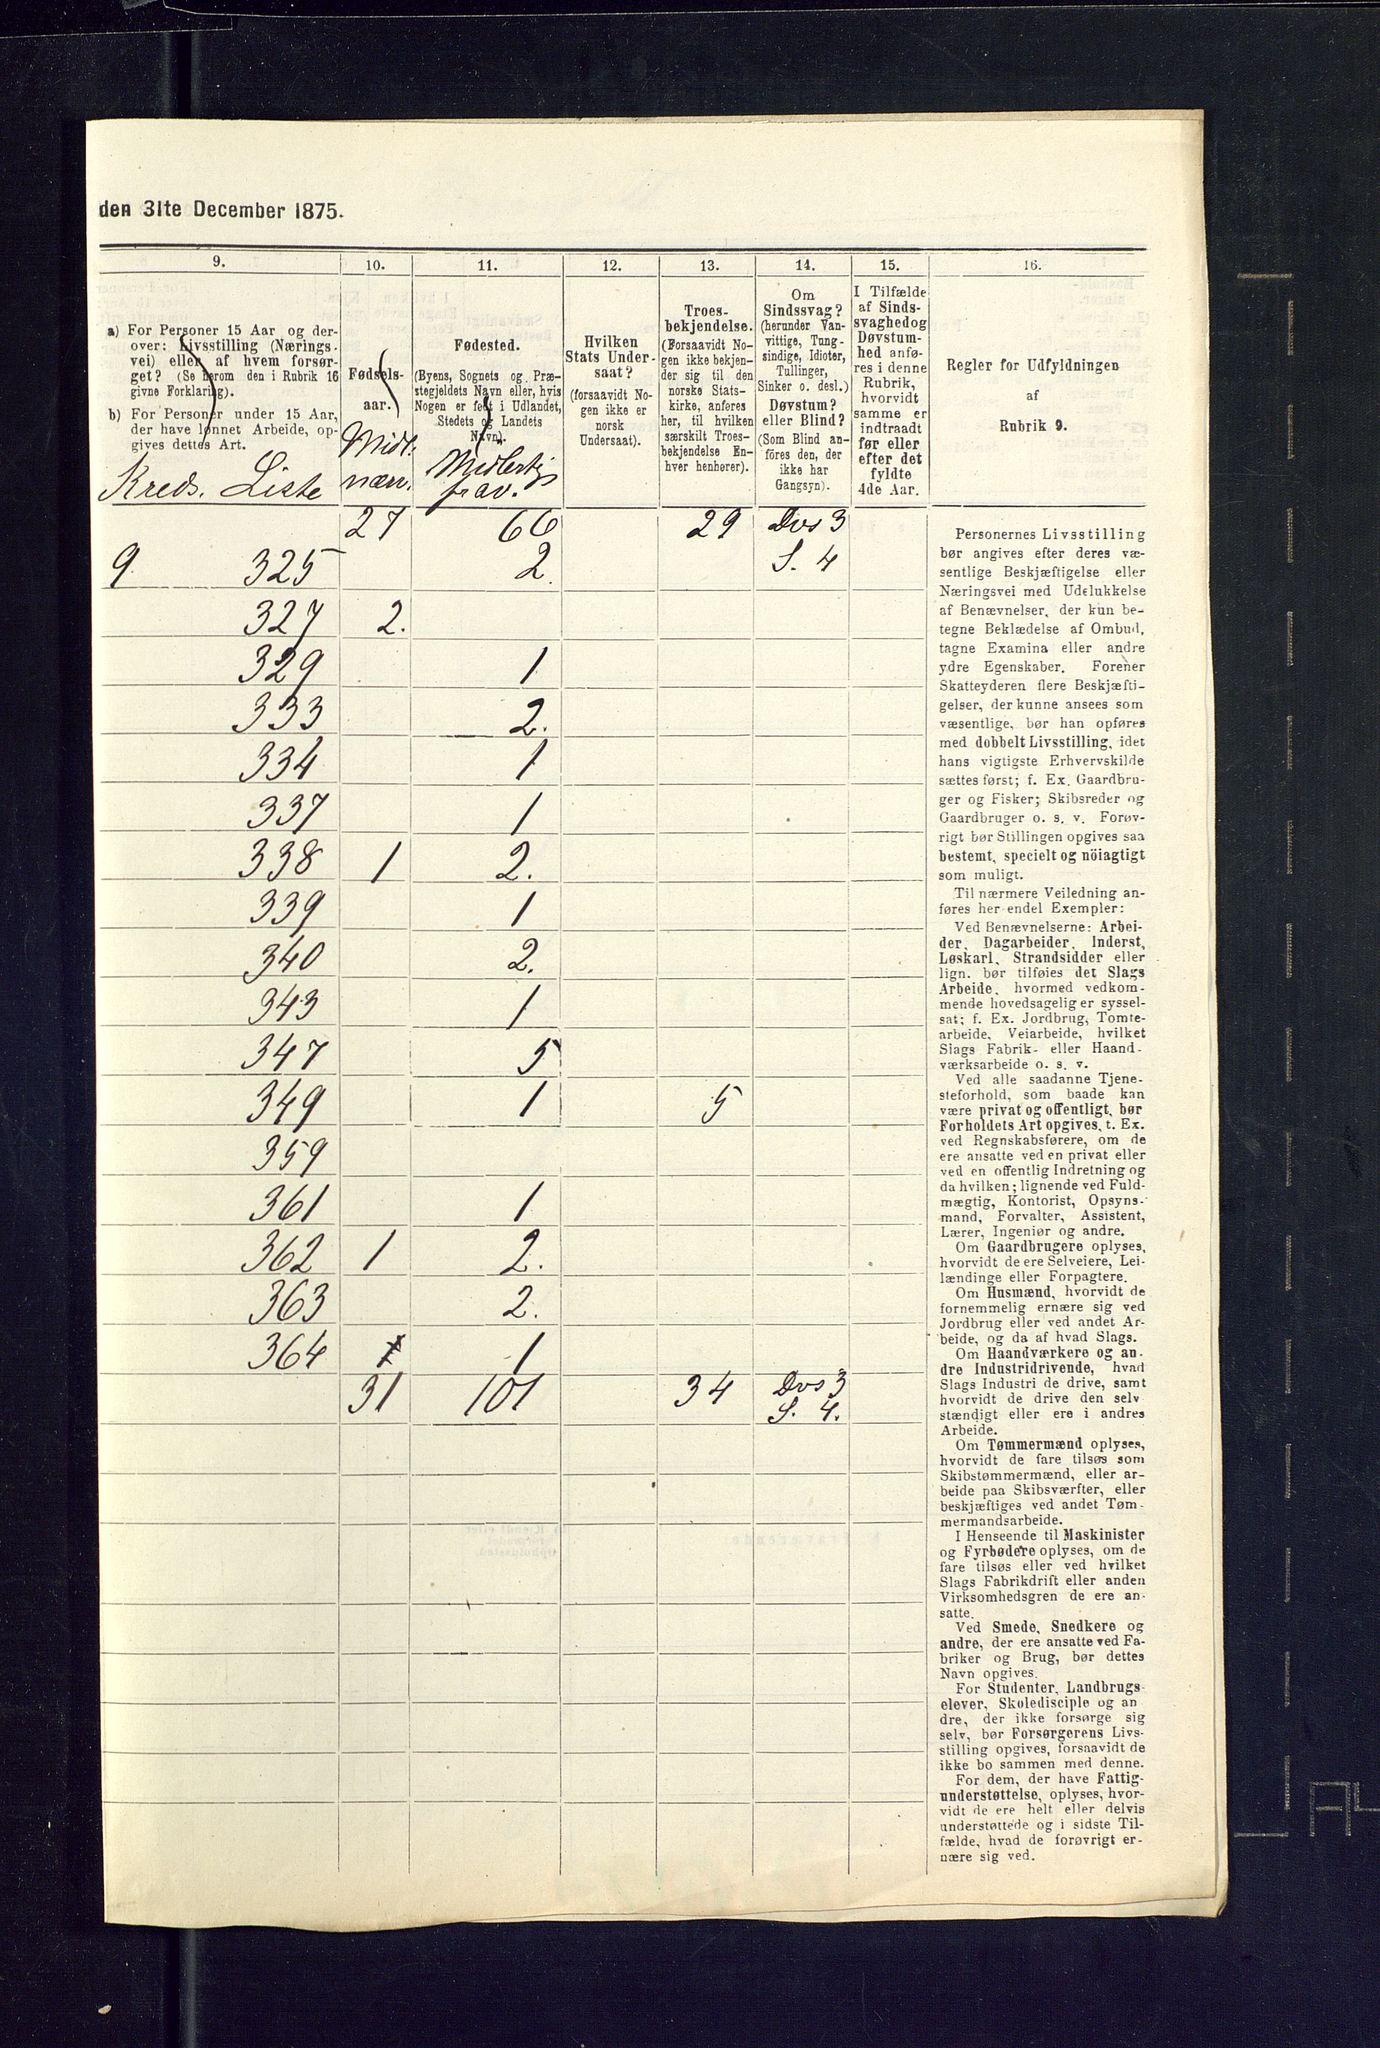 den 31te December 1875.
9. 10. 11. 12. 13. 14. 15. 16.
a) For Personer 15 Aar og der-
over: Livsstilling (Nærings-
vei) eller af hvem forsør-
get? (Se herom den i Rubrik 16
givne Forklaring).
b) For Personer under 15 Aar,
der have lønnet Arbeide, op-
gives dettes Art.
Kreds. Liste
Fødsels-
aar.
Midl:
nærv.
Fødested.
(Byens, Sognets og Præ-
stegjeldets Navn eller, hvis
Nogen er født i Udlandet,
Stedets og Landets
Navn).
Midlertig
frav.
Hvilken
Stats Under-
saat?
(forsaavidt No-
gen ikke er
norsk
Undersaat).
Troes-
bekjendelse.
(Forsaavidt No-
gen ikke bekjen-
der sig til den
norske Stats-
kirke, anføres
her, til hvilken
særskilt Troes-
bekjendelse En-
hver henhører).
Om
Sindssvag?
(herunder Van-
vittige, Tung-
sindige, Idioter,
Tullinger,
Sinker o. desl.)
Døvstum?
eller Blind?
(Som Blind an-
føres den, der
ikke har
Gangsyn).
I Tilfælde
af Sinds-
svaghedog
Døvstum-
hed anfø-
res i denne
Rubrik,
hvorvidt
samme er
indtraadt
før eller
efter det
fyldte
4de Aar.
Regler for Udfyldningen
af
Rubrik 9.
27 66 29 Dvs 3
9. 325 2. S. 4
327 2.
329 1
333 2.
334 1
337 1
338 1 2.
339 1
340 2.
343 1
347 5
349 1 5
359
361 1
362 1 2.
363 2.
364 1 1
31 101 34 Dvs 3
S. 4.
Personernes Livsstilling
bør angives efter deres væ-
sentlige Beskjæftigelse eller
Næringsvei med Udelukkelse
af Benævnelser, der kun be-
tegne Beklædelse af Ombud,
tagne Examina eller andre
ydre Egenskaber. Forener
Skatteyderen flere Beskjæfti-
gelser, der kunne ansees som
væsentlige, bør han opføres
med dobbelt Livsstilling, idet
hans vigtigste Erhvervskilde
sættes først; f. Ex. Gaardbru-
ger og Fisker; Skibsreder og
Gaardbruger o. s. v. Forøv-
rigt bør Stillingen opgives saa
bestemt, specielt og nöiagtigt
som muligt.
Til nærmere Veiledning an-
føres her endel Exempler:
Ved Benævnelserne: Arbei-
der, Dagarbeider, Inderst,
Løskarl, Strandsidder eller
lign. bør tilføies det Slags
Arbeide, hvormed vedkom-
mende hovedsagelig er syssel-
sat; f. Ex. Jordbrug, Tomte-
arbeide, Veiarbeide, hvilket
Slags Fabrik- eller Haand-
værksarbeide o. s. v.
Ved alle saadanne Tjene-
steforhold, som baade kan
være privat og offentligt, bør
Forholdets Art opgives, t. Ex.
ved Regnskabsførere, om de
ere ansatte ved en privat eller
ved en offentlig Indretning og
da hvilken; lignende ved Fuld-
mægtig, Kontorist, Opsyns-
mand, Forvalter, Assistent,
Lærer, Ingeniør og andre.
Om Gaardbrugere oplyses,
hvorvidt de ere Selveiere, Lei-
lændinge eller Forpagtere.
Om Husmænd, hvorvidt de
fornemmelig ernære sig ved
Jordbrug eller ved andet Ar-
beide, og da af hvad Slags.
Om Haandværkere og an-
dre Industridrivende, hvad
Slags Industri de drive, samt
hvorvidt de drive den selv-
stændigt eller ere i andres
Arbeide.
Om Tømmermænd oplyses,
hvorvidt de fare tilsøs som
Skibstømmermænd, eller ar-
beide paa Skibsværfter, eller
beskjæftiges ved andet Tøm-
mermandsarbeide.
I Henseende til Maskinister
og Fyrbødere oplyses, om de
fare tilsøs eller ved hvilket
Slags Fabrikdrift eller anden
Virksomhedsgren de ere an-
satte.
Ved Smede, Snedkere og
andre, der ere ansatte ved Fa-
briker og Brug, bør dettes
Navn opgives.
For Studenter, Landbrugs-
elever, Skoledisciple og an-
dre, der ikke forsørge sig
selv, bør Forsørgerens Livs-
stilling opgives, forsaavidt de
ikke bo sammen med denne.
For dem, der have Fattig-
understøttelse, oplyses, hvor-
vidt de ere helt eller delvis
understøttede og i sidste Til-
fælde, hvad de forøvrigt er-
nære sig ved.
A4